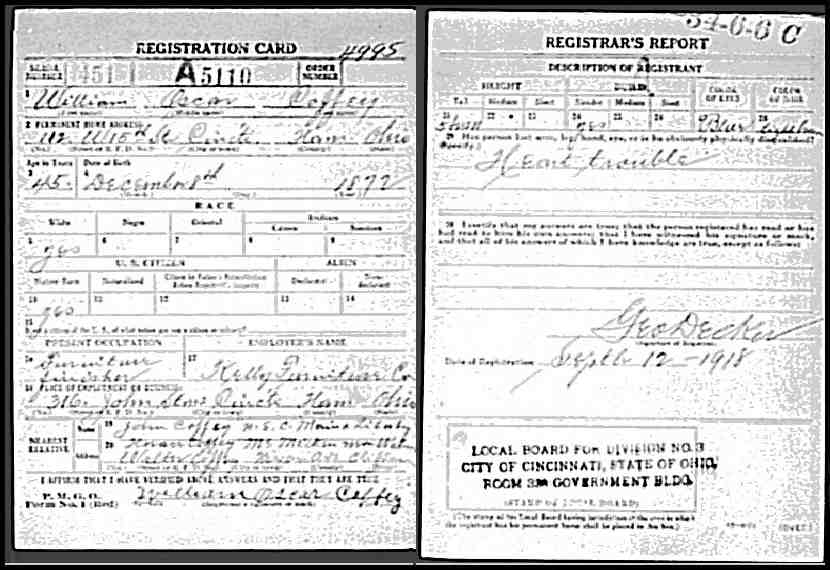 REGISTRATION CARD 4995
SERIAL NUMBER 451 A5110 ORDER NUMBER
1 William Oscar Coffey
2 PERMANENT HOME ADDRESS:
112 W 15th St Cinctti Ham Ohio
Age in Years Date of Birth
3 45 4 December 8th 1872
RACE
White Negro Oriental Indian
Citizen Noncitizen
5 yes 6 7 8 9
U. S. CITIZEN ALIEN
Native Born Naturalized Citizen by Father's Naturalization Before Registrant's Majority Declarant Non-declarant
10 yes 11 12 13 14
15
If not a citizen of the U. S., of what nation are you a citizen or subject?
PRESENT OCCUPATION EMPLOYER'S NAME
16 Furniture finisher 17 Kelly Furniture Co
18 PLACE OF EMPLOYMENT OR BUSINESS:
316 John Ham Ohio
NEAREST RELATIVE
Name 19 John Coffey N.E.C. Main & Liberty
Address 20 Horace Coffey
Walter Coffey
I AFFIRM THAT I HAVE VERIFIED ABOVE ANSWERS AND THAT THEY ARE TRUE
P. M. G. O.
Form No. 1 (Red) William Oscar Coffey
54-6-6 C
REGISTRAR'S REPORT
DESCRIPTION OF REGISTRANT
HEIGHT BUILD COLOR OF EYES COLOR OF HAIR
Tall Medium Short Slender Medium Stout
21 22 23 24 yes 25 26 27 Blue 28
29 Has person lost arm, leg, hand, eye, or is he obviously physically disqualified?
(Specify.)
Heart trouble
30 I certify that my answers are true; that the person registered has read or has
had read to him his own answers; that I have witnessed his signature or mark,
and that all of his answers of which I have knowledge are true, except as follows:
Geo Decker
(Signature of Registrar)
Date of Registration Septh 12 - 1918
LOCAL BOARD FOR DIVISION NO. 3
CITY OF CINCINNATI, STATE OF OHIO,
ROOM GOVERNMENT BLDG.
(STAMP OF LOCAL BOARD)
(The stamp of the Local Board having jurisdiction of the area in which
the registrant has his permanent home shall be placed in this box.)
(OVER)